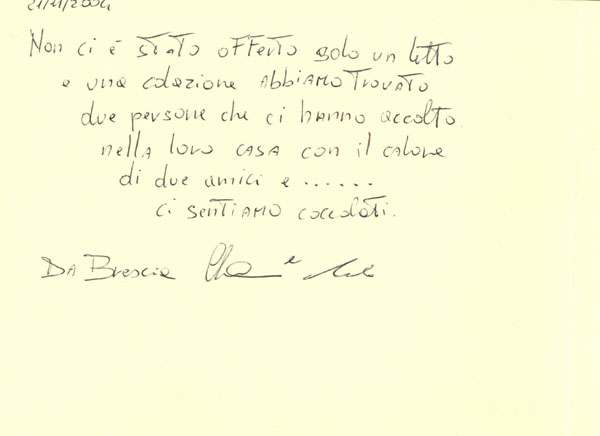 21/11/2004
Non ci è stato offerto solo un letto
e una colazione ABBIAMO TROVATO
due persone che ci hanno accolto
nella loro casa con il calore
di due amici e ......
ci sentiamo coccolati.
Da Brescia e